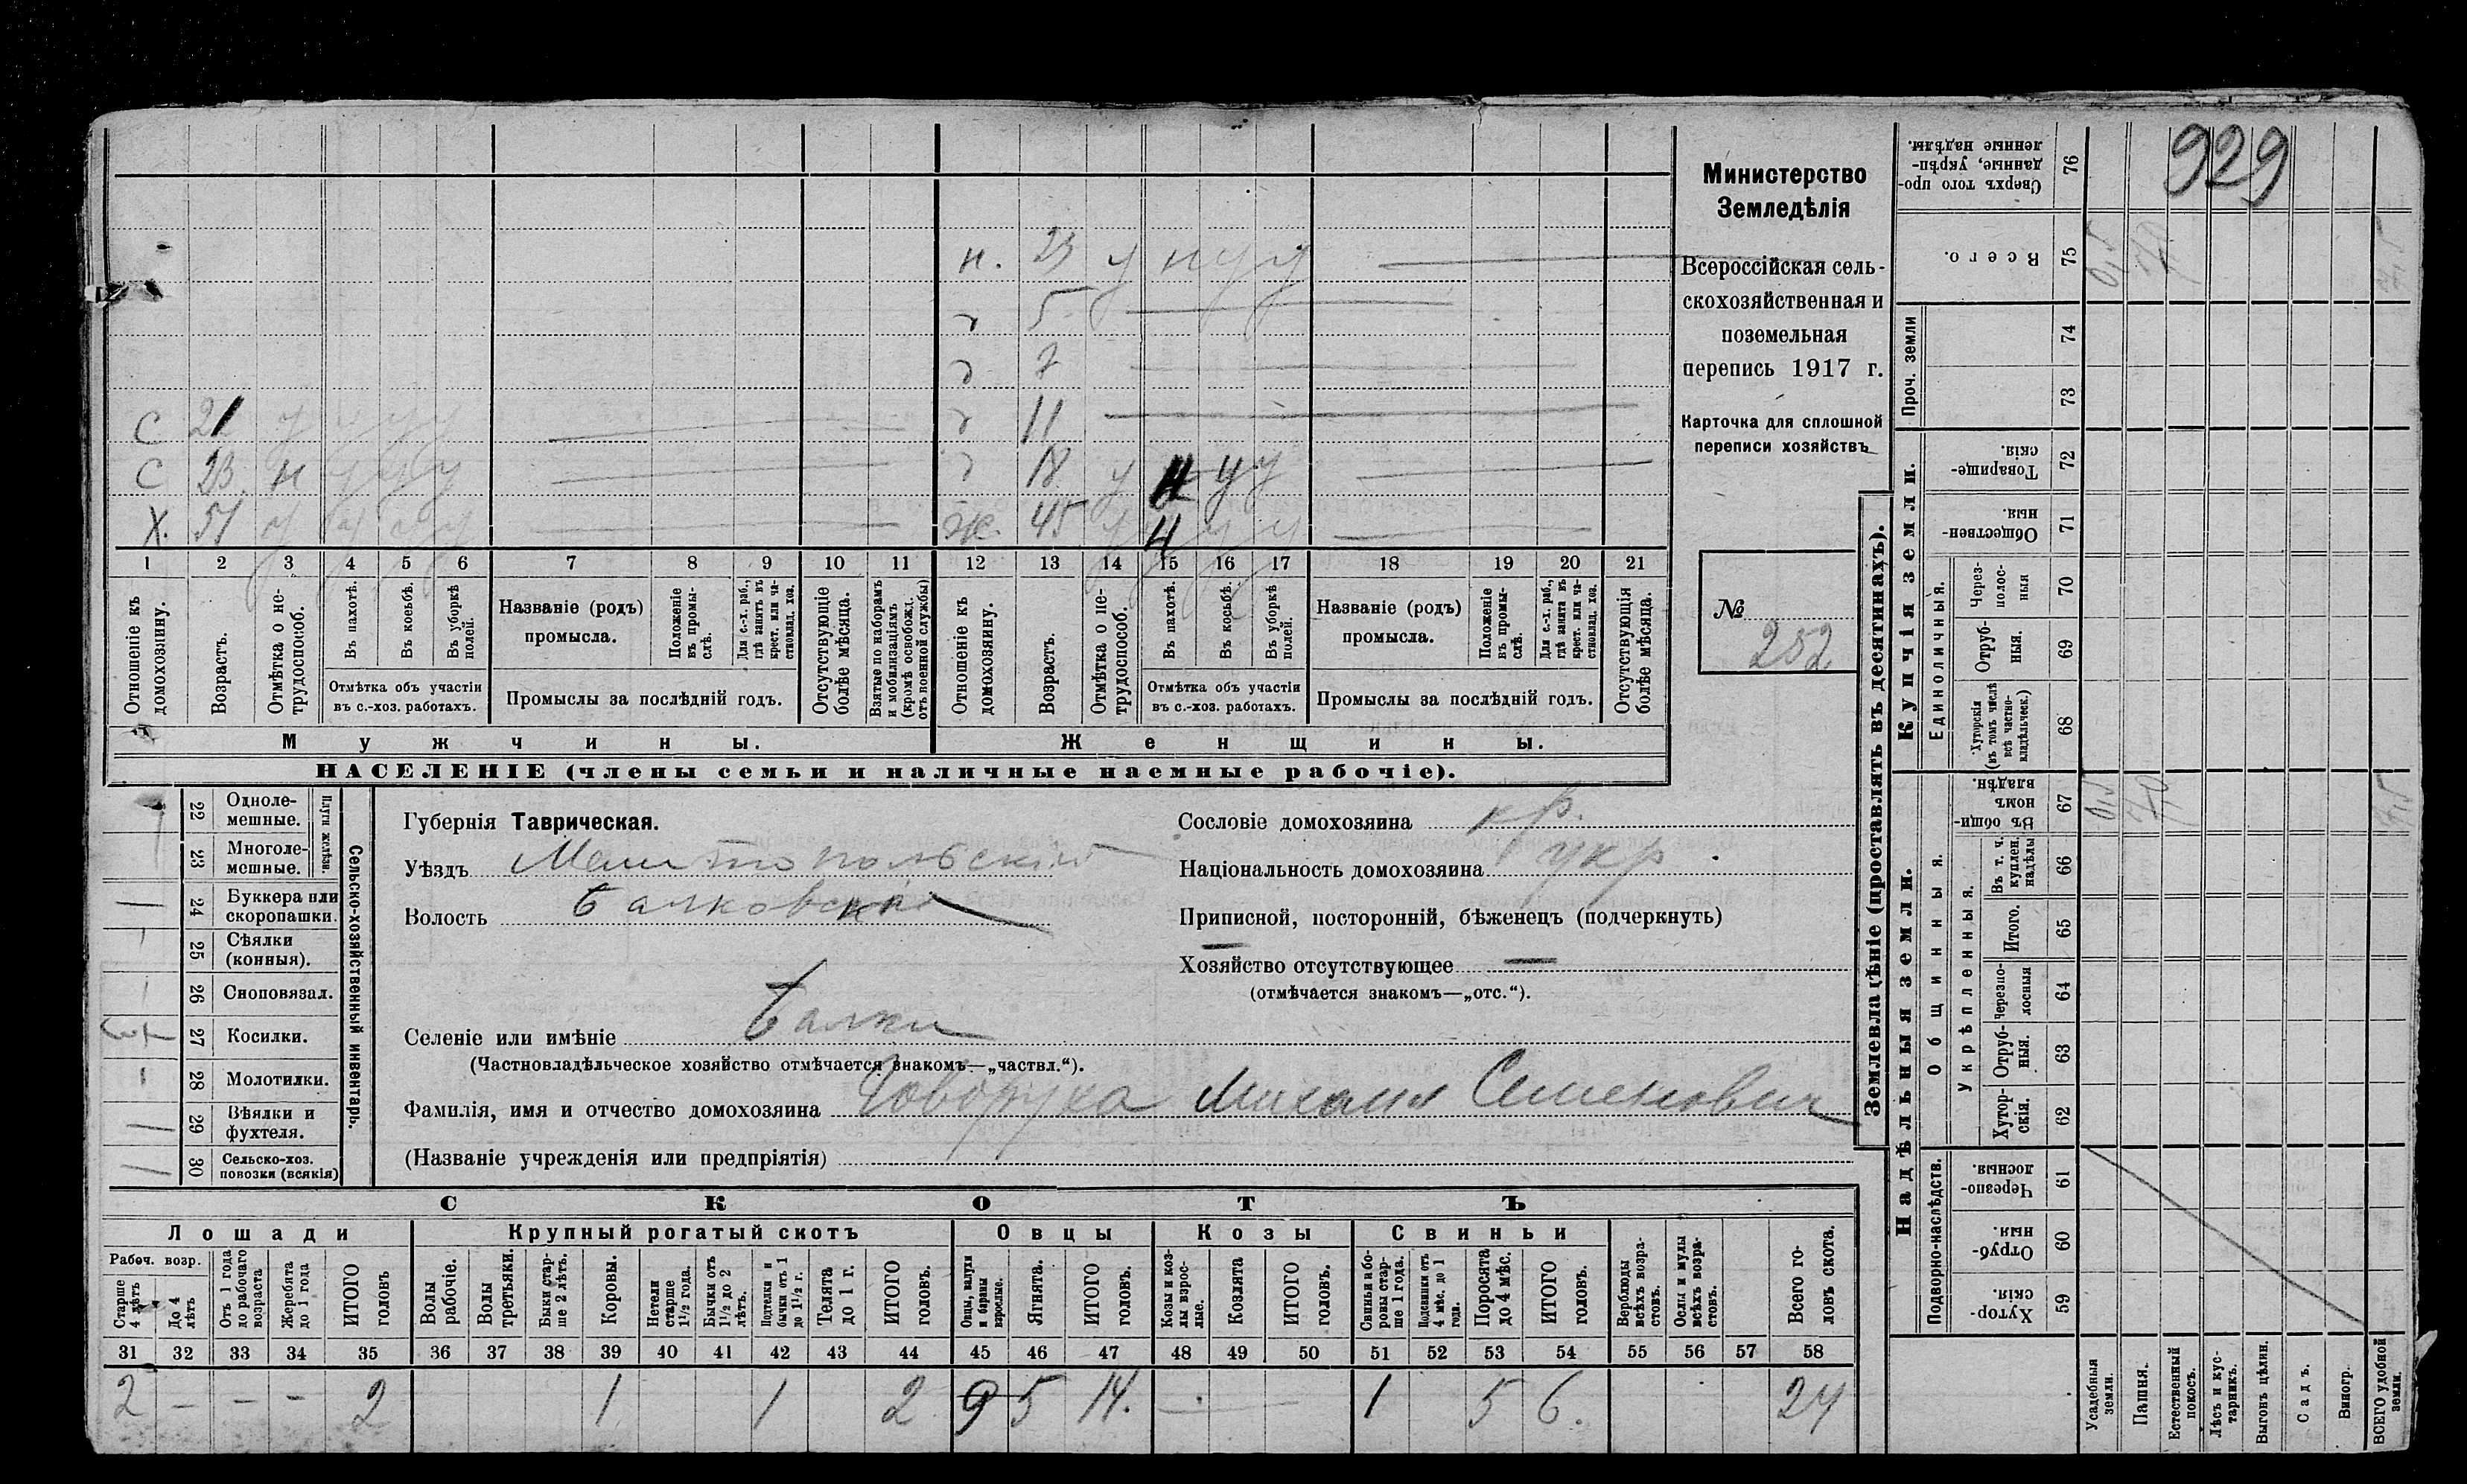 929
Министерство
Земледѣлія
Всероссійская сель-
скохозяйственная и
поземельная
перепись 1917 г.
Карточка для сплошной
переписи хозяйствъ
№
252
н. 23 у н у у
5
7
С 21 11
С 23 н 18 у н у у
Х. 51 ж. 45
1 2 3 4 5 6 7 8 9 10 11 12 13 14 15 16 17 18 19 20 21
Отношеніе къ домохозяину.
Возрастъ.
Отмѣтка о не-трудоспособ.
Въ пахотѣ.
Въ косьбѣ.
Въ уборкѣ полей.
Отмѣтка объ участіи
въ с.-хоз. работахъ.
Названіе (родъ)
промысла.
Положеніе въ промы-слѣ.
Для с.-х. раб., гдѣ занятъ въ крест. или ча-стновлад. хоз.
Промыслы за послѣдній годъ.
Отсутствующіе болѣе мѣсяца.
Взятые по наборамъ и мобилизаціямъ (кромѣ освобожд. отъ военной службы)
Отношеніе къ домохозяину.
Возрастъ.
Отмѣтка о не-трудоспособ.
Въ пахотѣ.
Въ косьбѣ.
Въ уборкѣ полей.
Отмѣтка объ участіи
въ с.-хоз. работахъ.
Названіе (родъ)
промысла.
Положеніе въ промы-слѣ.
Для с.-х. раб., гдѣ занята въ крест. или ча-стновлад. хоз.
Промыслы за послѣдній годъ.
Отсутствующія болѣе мѣсяца.
Мужчины. Женщины.
НАСЕЛЕНІЕ (члены семьи и наличные наемные рабочіе).
Сельско-хозяйственный инвентарь.
Плуги желѣзн.
22 Одноле-мешные.
23 Многоле-мешные.
24 Буккера или скоропашки.
25 Сѣялки (конныя).
26 Сноповязал.
27 Косилки.
28 Молотилки.
29 Вѣялки и фухтеля.
30 Сельско-хоз. повозки (всякія)
Губернія Таврическая.
Уѣздъ Мелитопольскій
Волость Балковская
Селеніе или имѣніе Балки
(Частновладѣльческое хозяйство отмѣчается знакомъ—„частвл.“).
Фамилія, имя и отчество домохозяина Говоруха Михаил Семенович
(Названіе учрежденія или предпріятія)
Сословіе домохозяина кр.
Національность домохозяина укр
Приписной, посторонній, бѣженец (подчеркнуть)
Хозяйство отсутствующее —
(отмѣчается знакомъ—„отс.“).
СКОТЪ
Лошади Крупный рогатый скотъ Овцы Козы Свиньи
Рабоч. возр.
Старше 4 лѣтъ
До 4 лѣтъ
Отъ 1 года до рабочаго возраста
Жеребята до 1 года
ИТОГО головъ
Волы рабочіе.
Волы третьяки.
Быки стар-ше 2 лѣтъ.
Коровы.
Нетели старше 1½ года.
Бычки отъ 1½ до 2 лѣтъ.
Подтелки и бычки отъ 1 до 1½ г.
Телята до 1 г.
ИТОГО головъ.
Овцы, валухи и бараны взрослые.
Ягнята.
ИТОГО головъ.
Козы и коз-лы взрос-лые.
Козлята
ИТОГО головъ.
Свиньи и бо-ровы стар-ше 1 года.
Подсвинки отъ 4 мѣс. до 1 года.
Поросята до 4 мѣс.
ИТОГО головъ.
Верблюды всѣхъ возра-стовъ.
Ослы и мулы всѣхъ возра-стовъ.
Всего го-ловъ скота.
31 32 33 34 35 36 37 38 39 40 41 42 43 44 45 46 47 48 49 50 51 52 53 54 55 56 57 58
2 — — — 2 1 1 2 9 5 14. 1 5 6. 24
Землевладѣніе (проставлять въ десятинахъ).
Надѣльныя земли. Купчія земли.
Подворно-наслѣдств.
Хутор-скія. 59
Отруб-ныя. 60
Черезпо-лосныя. 61
Общинныя.
Укрѣпленныя.
Хутор-скія. 62
Отруб-ныя. 63
Черезпо-лосныя 64
Итого. 65
Въ т. ч. куплен. надѣлы 66
Въ общи-номъ владѣн. 67
Единоличныя.
Хуторскія (въ томъ числѣ всѣ частно-владѣльческ.) 68
Отруб-ныя. 69
Через-полос-ныя 70
Обществен-ныя. 71
Товарище-скія. 72
Проч. земли
73
74
Всего. 75
Сверхъ того про-данные, укрѣп-ленные надѣлы. 76
Усадебныя земли.
Пашня.
Естественный покосъ.
Лѣсъ и кус-тарникъ.
Выгонъ цѣлин.
Садъ.
Виногр.
ВСЕГО удобной земли.
0,5
0,5